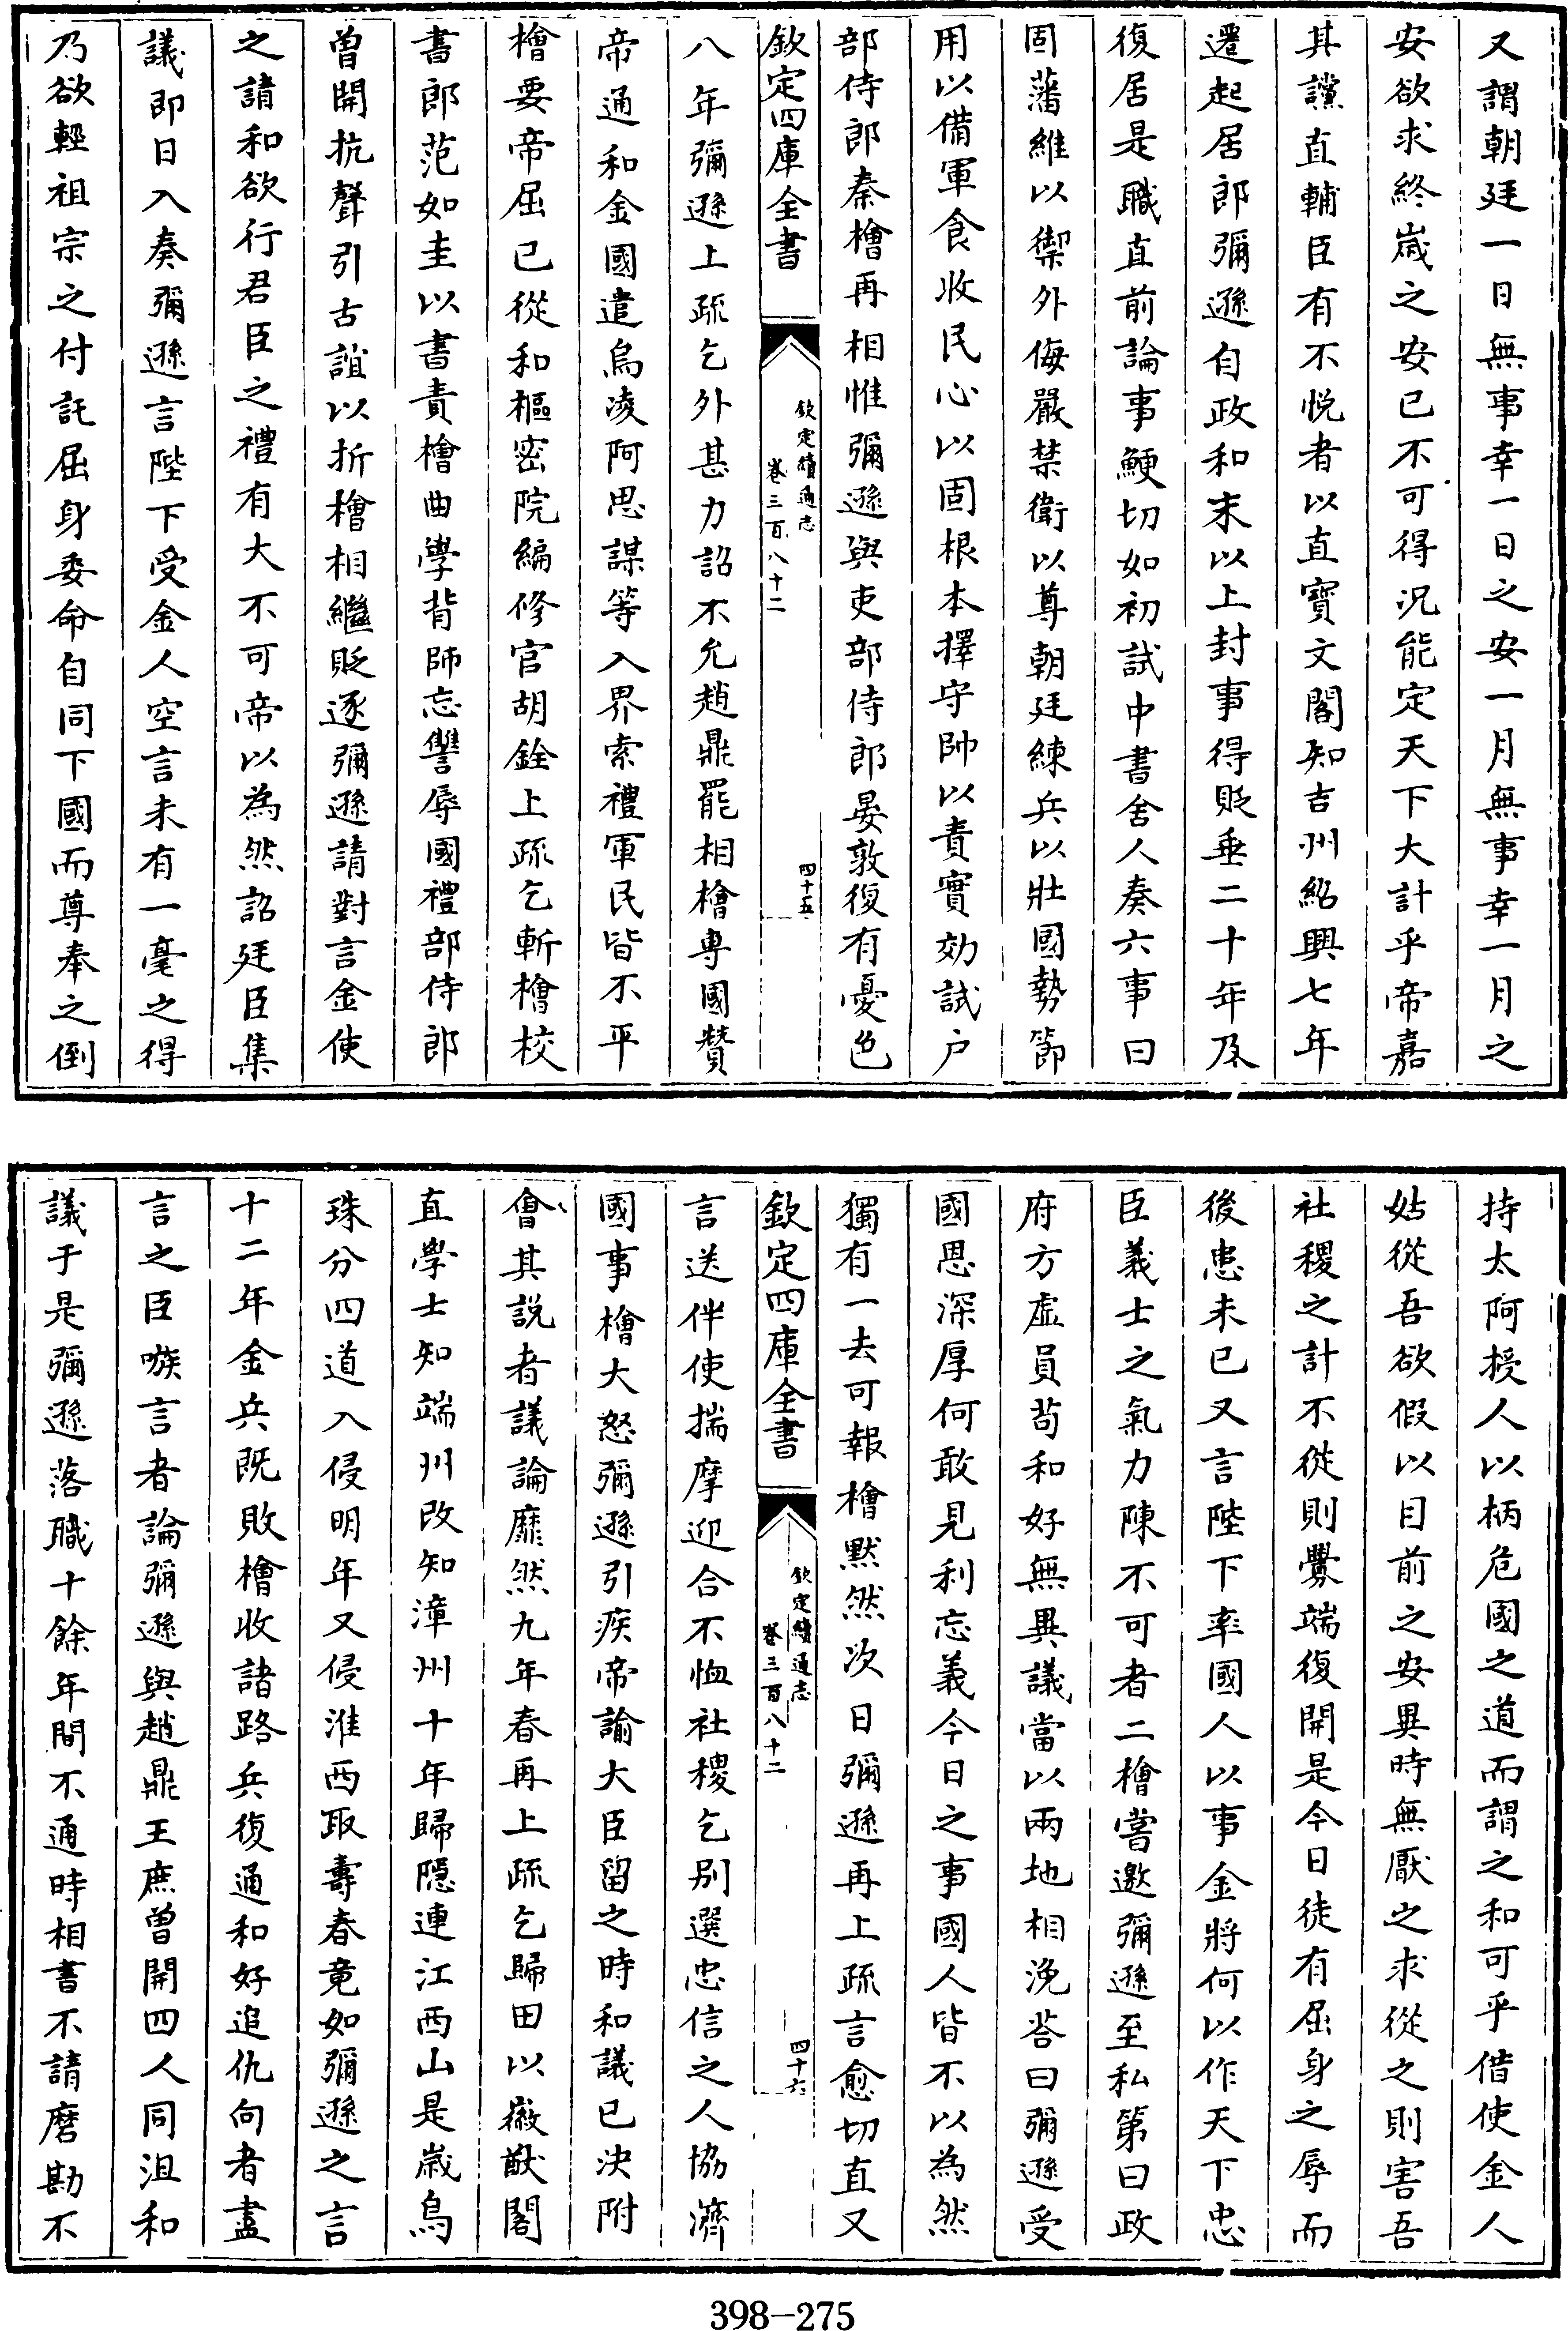 又謂朝廷一日無事幸一日之安一月無事幸一月之
安欲求終歲之安已不可得況能定天下大計乎帝嘉
其讜直輔臣有不悦者以直寶文閣知吉州紹興七年
遷起居郎彌遜自政和末以上封事得貶垂二十年及
復居是職直前論事鯁切如初試中書舍人奏六事曰
固藩維以禦外侮嚴禁衛以尊朝廷練兵以壯國勢節
用以備軍食收民心以固根本擇守帥以責實効試户
部侍郎秦檜再相惟彌遜與吏部侍郎晏敦復有憂色
欽定四庫全書
欽定續通志
卷三百八十二
四十五
八年彌遜上疏乞外甚力詔不允趙鼎罷相檜專國贊
帝通和金國遣烏凌阿思謀等入界索禮軍民皆不平
檜要帝屈已從和樞密院編修官胡銓上疏乞斬檜校
書郎范如圭以書責檜曲學背師忘讐辱國禮部侍郎
曾開抗聲引古誼以折檜相繼貶逐彌遜請對言金使
之請和欲行君臣之禮有大不可帝以為然詔廷臣集
議即日入奏彌遜言陛下受金人空言未有一毫之得
乃欲輕祖宗之付託屈身委命自同下國而尊奉之倒
持太阿授人以柄危國之道而謂之和可乎借使金人
姑從吾欲假以目前之安異時無厭之求從之則害吾
社稷之計不從則釁端復開是今日徒有屈身之辱而
後患未已又言陛下率國人以事金將何以作天下忠
臣義士之氣力陳不可者二檜嘗邀彌遜至私第曰政
府方虛員苟和好無異議當以兩地相浼荅曰彌遜受
國恩深厚何敢見利忘義今日之事國人皆不以為然
獨有一去可報檜默然次日彌遜再上疏言愈切直又
欽定四庫全書
欽定續通志
卷三百八十二
四十六
言送伴使揣摩迎合不恤社稷乞别選忠信之人協濟
國事檜大怒彌遜引疾帝諭大臣留之時和議已決附
會其説者議論靡然九年春再上疏乞歸田以徽猷閣
直學士知端州改知漳州十年歸隱連江西山是歲烏
珠分四道入侵明年又侵淮西取壽春竟如彌遜之言
十二年金兵既敗檜收諸路兵復通和好追仇向者盡
言之臣嗾言者論彌遜與趙鼎王庶曾開四人同沮和
議于是彌遜落職十餘年間不通時相書不請磨勘不
398-275